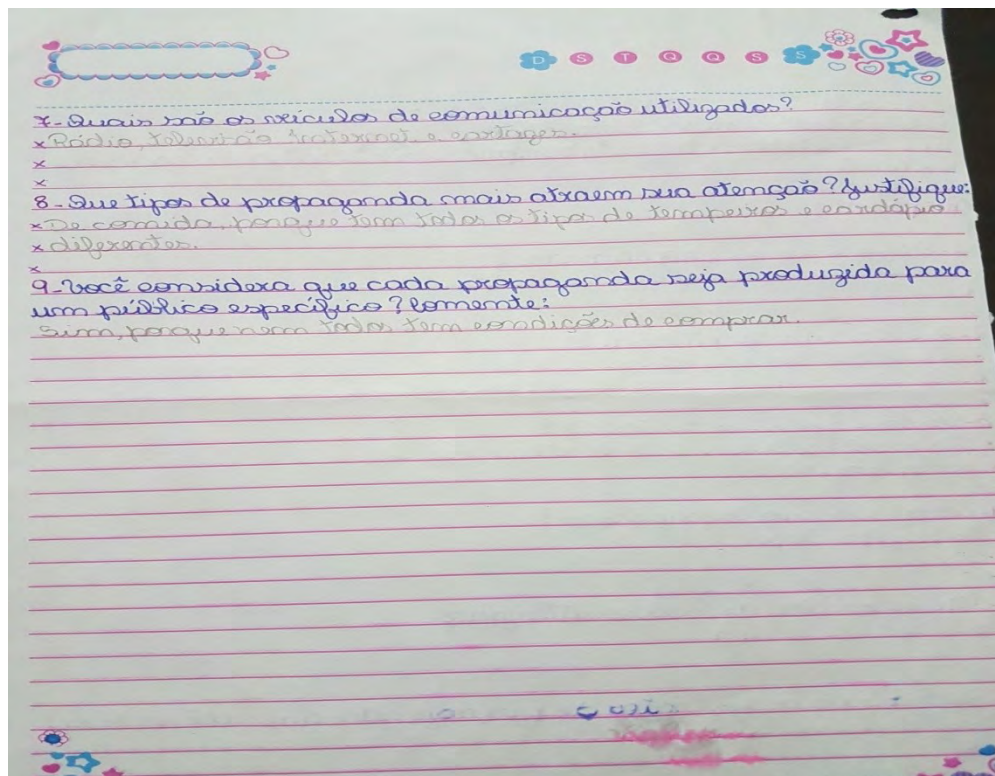 D S T Q Q S S
7-Quais são os veículos de comunicação utilizados?
x Rádio, televisão internet e cartazes.
x
x
8-Que tipos de propaganda mais atraem sua atenção? Justifique:
x De comida, porque tem todos os tipos de temperos e cardápio
x diferentes.
x
9-Você considera que cada propaganda seja produzida para
um público específico? Comente:
Sim, porque nem todos tem condições de comprar.